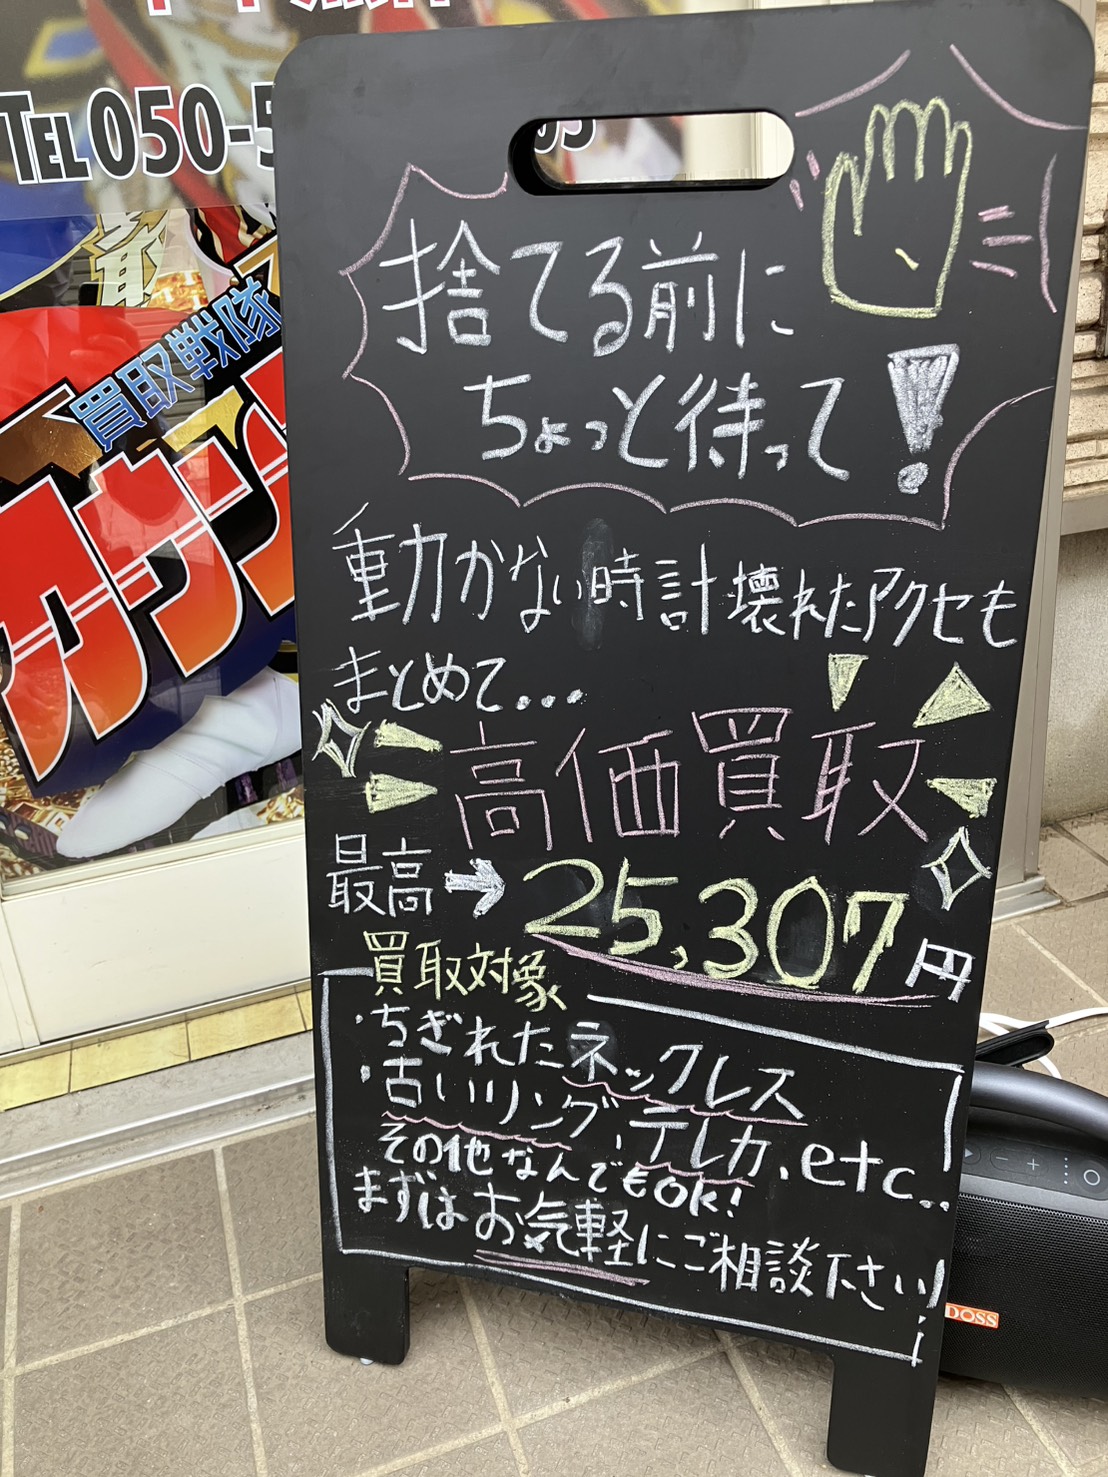 TEL 050-5
捨てる前に
ちょっと待って!
動かない時計壊れたアクセも
まとめて...
高価買取
最高➡25,307円
買取対象
・ちぎれたネックレス
・古いリング、テレカ、etc..
その他なんでもOK!
まずはお気軽にご相談下さい!
買取戦隊
カウ
DOSS